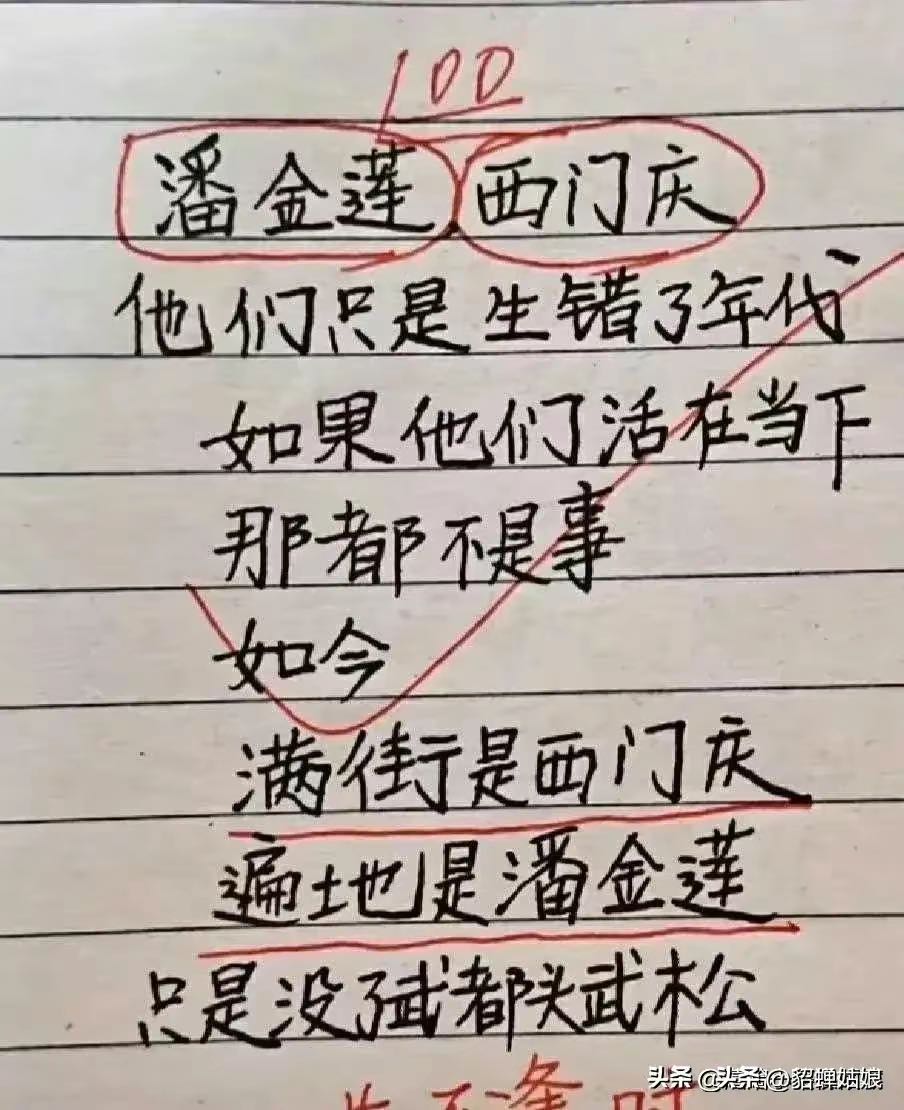 100
潘金莲 西门庆
他们只是生错了年代
如果他们活在当下
那都不是事
如今
满街是西门庆
遍地是潘金莲
只是没了武都头武松
生不逢时
头条 @头条@貂蝉姑娘